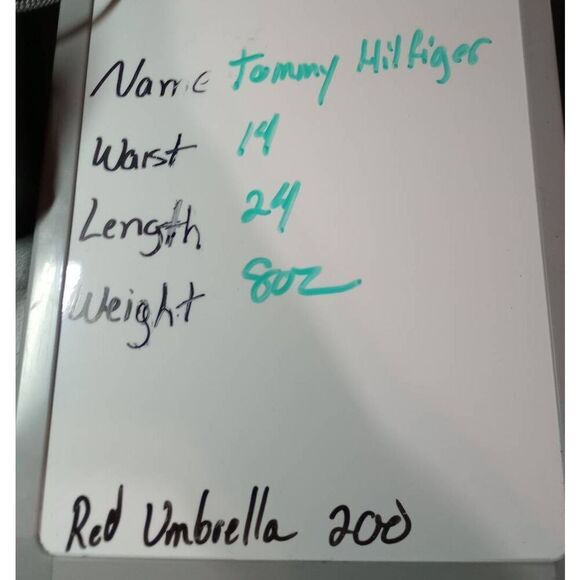 Name Tommy Hilfiger
Waist 14
Length 24
Weight 8oz
Red Umbrella 200